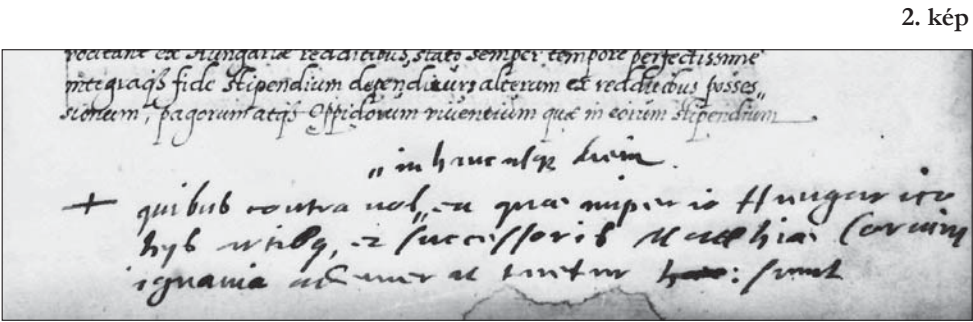 2. kép
vocitant ex Hungariæ redditibus, stato semper tempore perfectissime
integraqꝫ fide stipendium dependitur, alterum ex redditibus posses„
sionum, pagorum atqꝫ Oppidorum quæ in eorum stipendium
„ in hancusqꝫ diem.
+ quibus contra nos„ ea quæ imperio Hungarico
hijs artibqꝫ, et successoris Matthiæ Corvini
ignavia tuetur : sunt